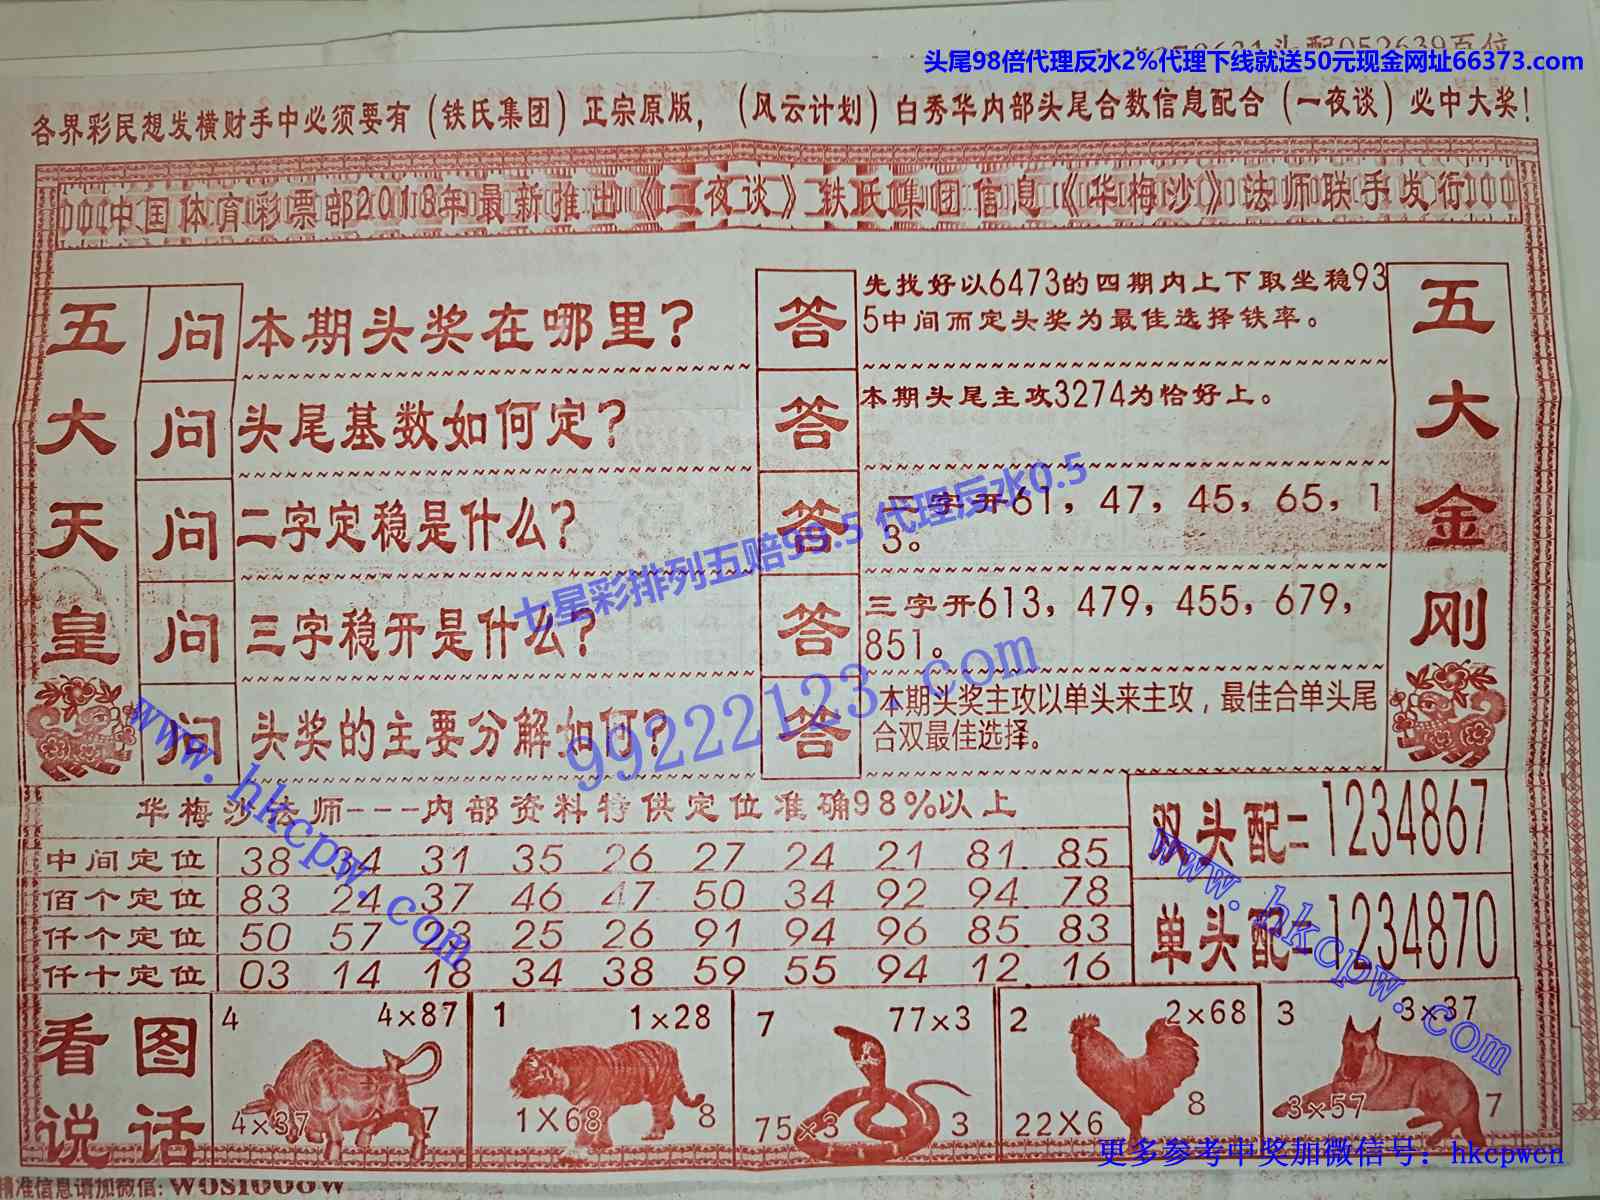 头尾98倍代理反水2%代理下线就送50元现金网址66373.com
各界彩民想发横财手中必须要有（铁氏集团）正宗原版，（风云计划）白秀华内部头尾合数信息配合（一夜谈）必中大奖！
中国体育彩票部2018年最新推出《一夜谈》铁氏集团信息《华梅沙》法师联手发行
五大天皇
问 本期头奖在哪里？
答 先找好以6473的四期内上下取坐稳93
5中间而定头奖为最佳选择铁率。
问 头尾基数如何定？
答 本期头尾主攻3274为恰好上。
问 二字定稳是什么？
答 二字开61，47，45，65，1
3。
问 三字稳开是什么？
答 三字开613，479，455，679，
851。
问 头奖的主要分解如何？
答 本期头奖主攻以单头来主攻，最佳合单头尾
合双最佳选择.
五大金刚
七星彩排列五赔99.5 代理反水0.5
99222123.com
www.hkcpw.com
华梅沙法师---内部资料特供定位准确98%以上
中间定位 38 34 31 35 26 27 24 21 81 85
佰个定位 83 24 37 46 47 50 34 92 94 78
仟个定位 50 57 23 25 26 91 94 96 85 83
仟十定位 03 14 18 34 38 59 55 94 12 16
双头配=1234867
单头配=1234870
www.hkcpw.com
看图
说话
4 4×87
4×37 7
1 1×28
1X68 8
7 77×3
75×3 3
2 2×68
22X6 8
3 3×37
3×57 7
更多参考中奖加微信号：hkcpwcn
准信息请加微信：W0S1008W